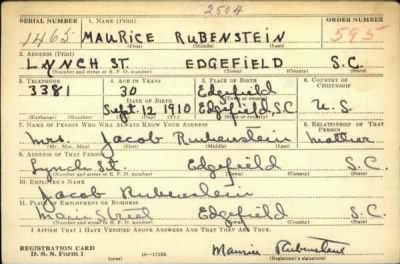 2504
SERIAL NUMBER 1. NAME (Print) ORDER NUMBER
1465 MAURICE RUBENSTEIN 595
(First) (Middle) (Last)
2. ADDRESS (Print)
LYNCH ST. EDGEFIELD S.C.
(Number and street or R. F. D. number) (Town) (County) (State)
3. TELEPHONE 4. AGE IN YEARS 5. PLACE OF BIRTH 6. COUNTRY OF CITIZENSHIP
3381 30 Edgefield
DATE OF BIRTH (Town or county)
Sept. 12, 1910 Edgefield, S.C. U.S.
(Exchange) (Number) (Mo.) (Day) (Yr.) (State or country)
7. NAME OF PERSON WHO WILL ALWAYS KNOW YOUR ADDRESS 8. RELATIONSHIP OF THAT PERSON
Mrs. Jacob Rubenstein mother
(Mr., Mrs., Miss) (First) (Middle) (Last)
9. ADDRESS OF THAT PERSON
Lynch St. Edgefield S.C.
(Number and street or R. F. D. number) (Town) (County) (State)
10. EMPLOYER'S NAME
Jacob Rubenstein
11. PLACE OF EMPLOYMENT OR BUSINESS
Main Street Edgefield S.C.
(Number and street or R. F. D. number) (Town) (County) (State)
I AFFIRM THAT I HAVE VERIFIED ABOVE ANSWERS AND THAT THEY ARE TRUE.
REGISTRATION CARD
D. S. S. Form 1 (over) Maurice Rubenstein
(Registrant's signature)